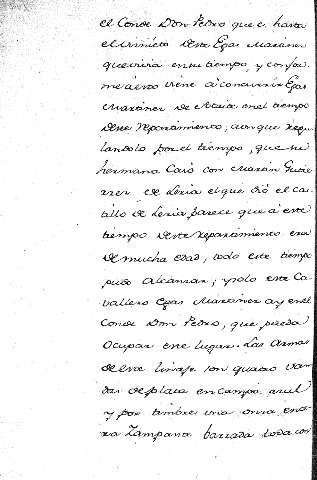 el Conde Don Pedro que e. hasta
el visnieto deste Egas Martinez
que viviria en su tiempo, y confor
me a esto viene à concurrir Egas
Martinez de Ataia en el tiempo
deste Repartimiento, aunque regu
landolo por el tiempo, que su
hermana Casó con Martin Gutie
rrez de Leria el que dió el Cas
tillo de Leria parece que à este
tiempo deste Repartimiento era
de mucha edad, todo este tiempo
pudo Alcanzar; y solo este Ca
vallero Egas Martinez ay en el
Conde Don Pedro, que pueda
Ocupar este lugar. Las Armas
deste linage son quatro van
das de plata en campo azul
y por timbre una onza en
la Zampana barrada toda con